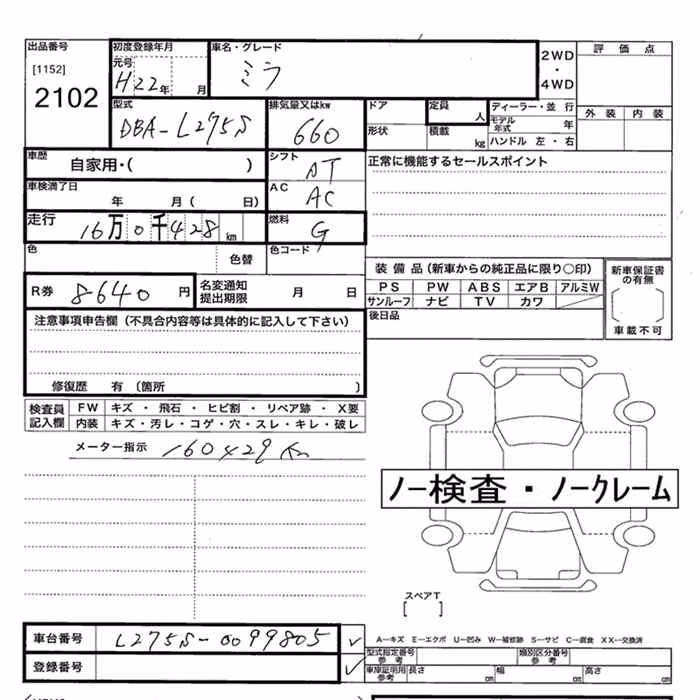 出品番号
[1152]
2102
初度登録年月
元号
H22年 月
車名・グレード
ミラ
2WD
・
4WD
評 価 点
外 装 内 装
型式
DBA-L275S
排気量又はkw
660
ドア
形状
定員
人
積載
kg
ディーラー・並 行
モデル年式 年
ハンドル 左・右
車歴
自家用・( )
シフト
AT
正常に機能するセールスポイント
車検満了日
年 月( 日)
AC
AC
走行
16万0千428km
燃料
G
色
色替
色コード
R券
8640円
名変通知
提出期限
月 日
装 備 品(新車からの純正品に限り○印)
PS PW ABS エアB アルミW
サンルーフ ナビ TV カワ
後日品
新車保証書
の有無
車載不可
注意事項申告欄(不具合内容等は具体的に記入して下さい)
修復歴 有(箇所 )
検査員
記入欄
FW キズ・飛石・ヒビ割・リペア跡・X要
内装 キズ・汚レ・コゲ・穴・スレ・キレ・破レ
メーター指示 160429Km
ノー検査・ノークレーム
スペアT
[ ]
車台番号 L275S-0099805
登録番号
A―キズ E―エクボ U―凹み W―補修跡 S―サビ C―腐食 XX―交換済
型式指定番号
参考
類別区分番号
参考
車庫証明用
参考
長さ cm 幅 cm 高さ cm